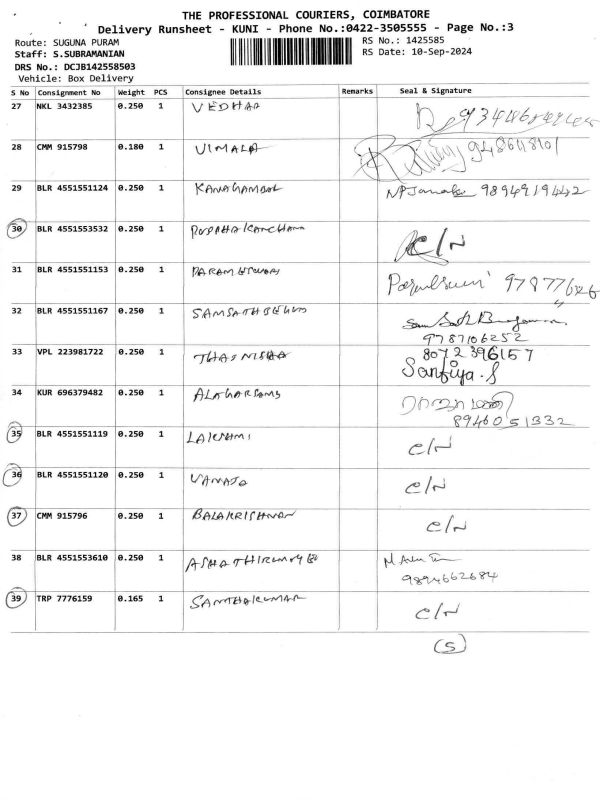 THE PROFESSIONAL COURIERS, COIMBATORE
Delivery Runsheet - KUNI - Phone No.:0422-3505555 - Page No.:3
Route: SUGUNA PURAM RS No.: 1425585
Staff: S.SUBRAMANIAN RS Date: 10-Sep-2024
DRS No.: DCJB142558503
Vehicle: Box Delivery
S No Consignment No Weight PCS Consignee Details Remarks Seal & Signature
27 NKL 3432385 0.250 1
28 CMM 915798 0.180 1 VIMALA
29 BLR 4551551124 0.250 1 NPJanaki 9894919442
30 BLR 4551553532 0.250 1 C/N
31 BLR 4551551153 0.250 1
32 BLR 4551551167 0.250 1 SAMSATHBEGUM
9787106252
33 VPL 223981722 0.250 1 THASNISHA 8072396157
Sanfiya.S
34 KUR 696379482 0.250 1 ALAGARSAMY
8946051332
35 BLR 4551551119 0.250 1 LAKSHMI C/N
36 BLR 4551551120 0.250 1 VANAJA C/N
37 CMM 915796 0.250 1 BALAKRISHNAN C/N
38 BLR 4551553610 0.250 1
9894662684
39 TRP 7776159 0.165 1 SANTHAKUMAR C/N
(5)